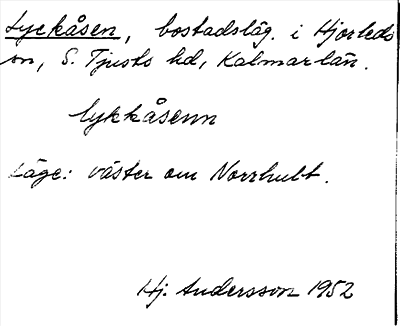 Lyckåsen, bostadsläg. i Hjorteds
sn, S. Tjusts hd, Kalmar län.
lykkåsenn
Läge: väster om Norrhult.
Hj. Andersson 1952